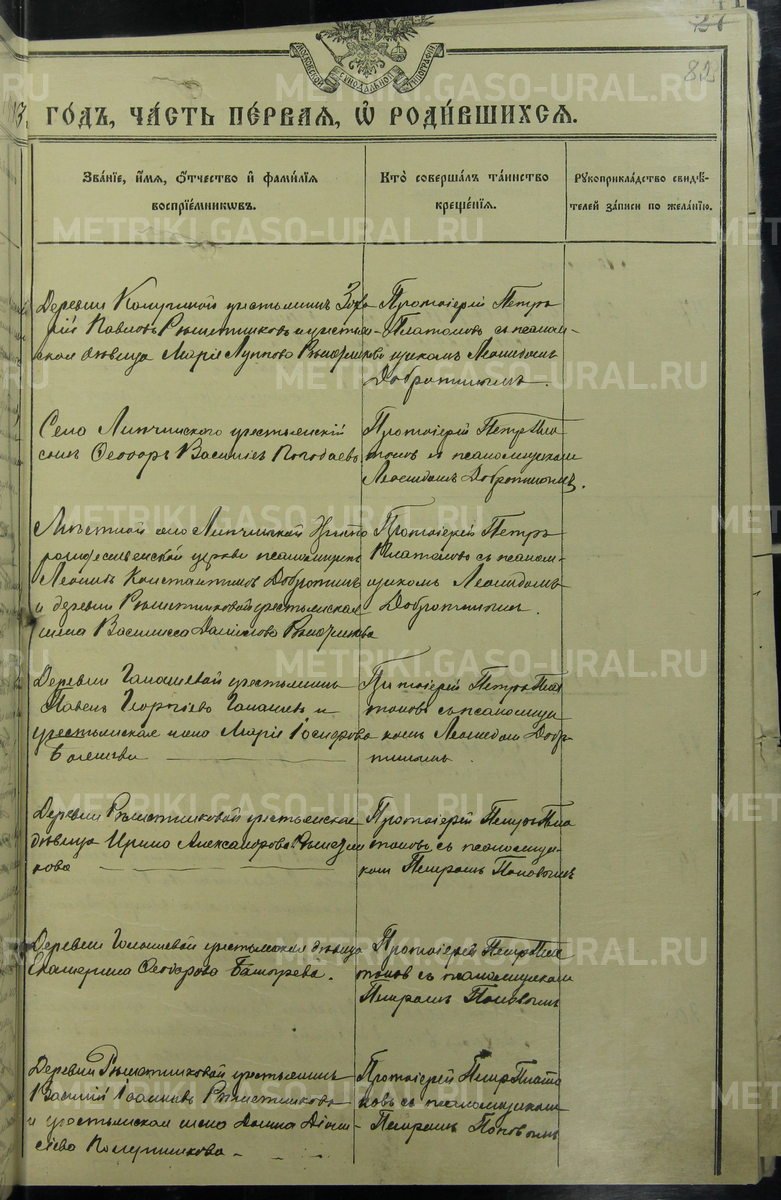 126
82
МОСКОВСКОЙ СѴНОДАЛЬНОЙ ТИПОГРАФІИ
3. ГОДЪ, ЧАСТЬ ПЕРВАЯ, Ѡ РОДИВШИХСЯ.
Званіе, имя, отчество и фамилія воспріемниковъ.
Кто совершалъ таинство крещенія.
Рукоприкладство свидѣтелей записи по желанію.
Деревни крестьянинъ
Павловъ Рѣшетниковъ и крестьян-
ская дѣвица Марія Луппова
Протоіерей Петръ
Платоновъ съ псалом-
щикомъ Леонидомъ
Добротинымъ.
Село Липчинского крестьянскій
сынъ Ѳеодоръ Василіевъ Погодаевъ.
Протоіерей Петръ Пла
тоновъ съ псаломщикомъ
Леонидомъ Добротинымъ.
Мѣстной село Липчинской
церкви псаломщикъ
Леонидъ Константиновъ Добротинъ
и деревни Рѣшетниковой крестьянская
жена Василисса Даніилова
Протоіерей Петръ
Платоновъ съ псалом-
щикомъ Леонидомъ
Добротинымъ.
Деревни Галашевой крестьянинъ
Павелъ Георгіевъ Галашевъ и
крестьянская жена Марія Іосифова
Протоіерей Петръ Пла
тоновъ съ псаломщи
комъ Леонидом Добр-
тинымъ.
Деревни Рѣшетниковой крестьянская
дѣвица Ирина Александрова Рѣшетни
кова
Протоіерей Петръ Пла
тоновъ съ псаломщи-
ком Петромъ Поповымъ
Деревни Галашевой крестьянская дѣвица
Екатерина Ѳеодорова
Протоіерей Петръ Пла
тоновъ съ псаломщикомъ
Петромъ Поповымъ
Деревни Рѣшетниковой крестьянинъ
Василій Іоанновъ Рѣшетниковъ
и крестьянская жена Домна Діони
сіева
Протоіерей Петръ Плато
новъ съ псаломщикомъ
Петромъ Поповымъ
METRIKI.GASO-URAL.RU